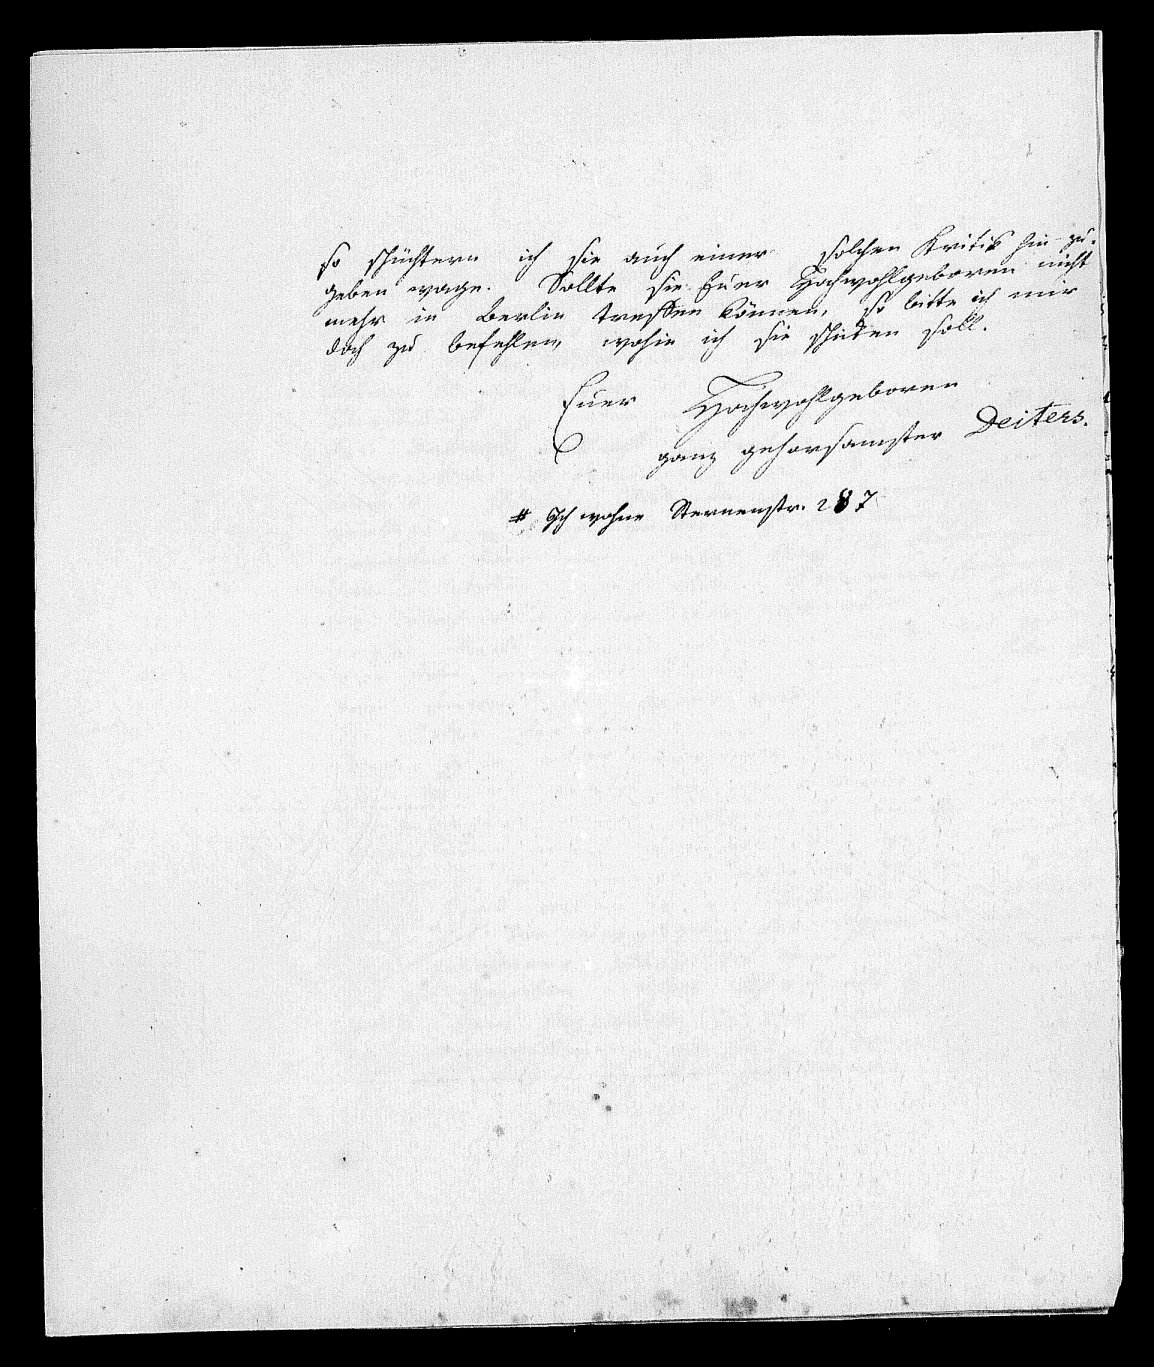 so schüchtern ich sie auch einer solchen Kritik hin zu-
geben wage. Sollte sie Euer Hochwohlgeboren nicht
mehr in Berlin treffen können, so bitte ich mir
doch zu befehlen, wohin ich sie schicken soll.
Euer Hochwohlgeboren
ganz gehorsamster Deiters.
# Ich wohne Sternenstr. 287